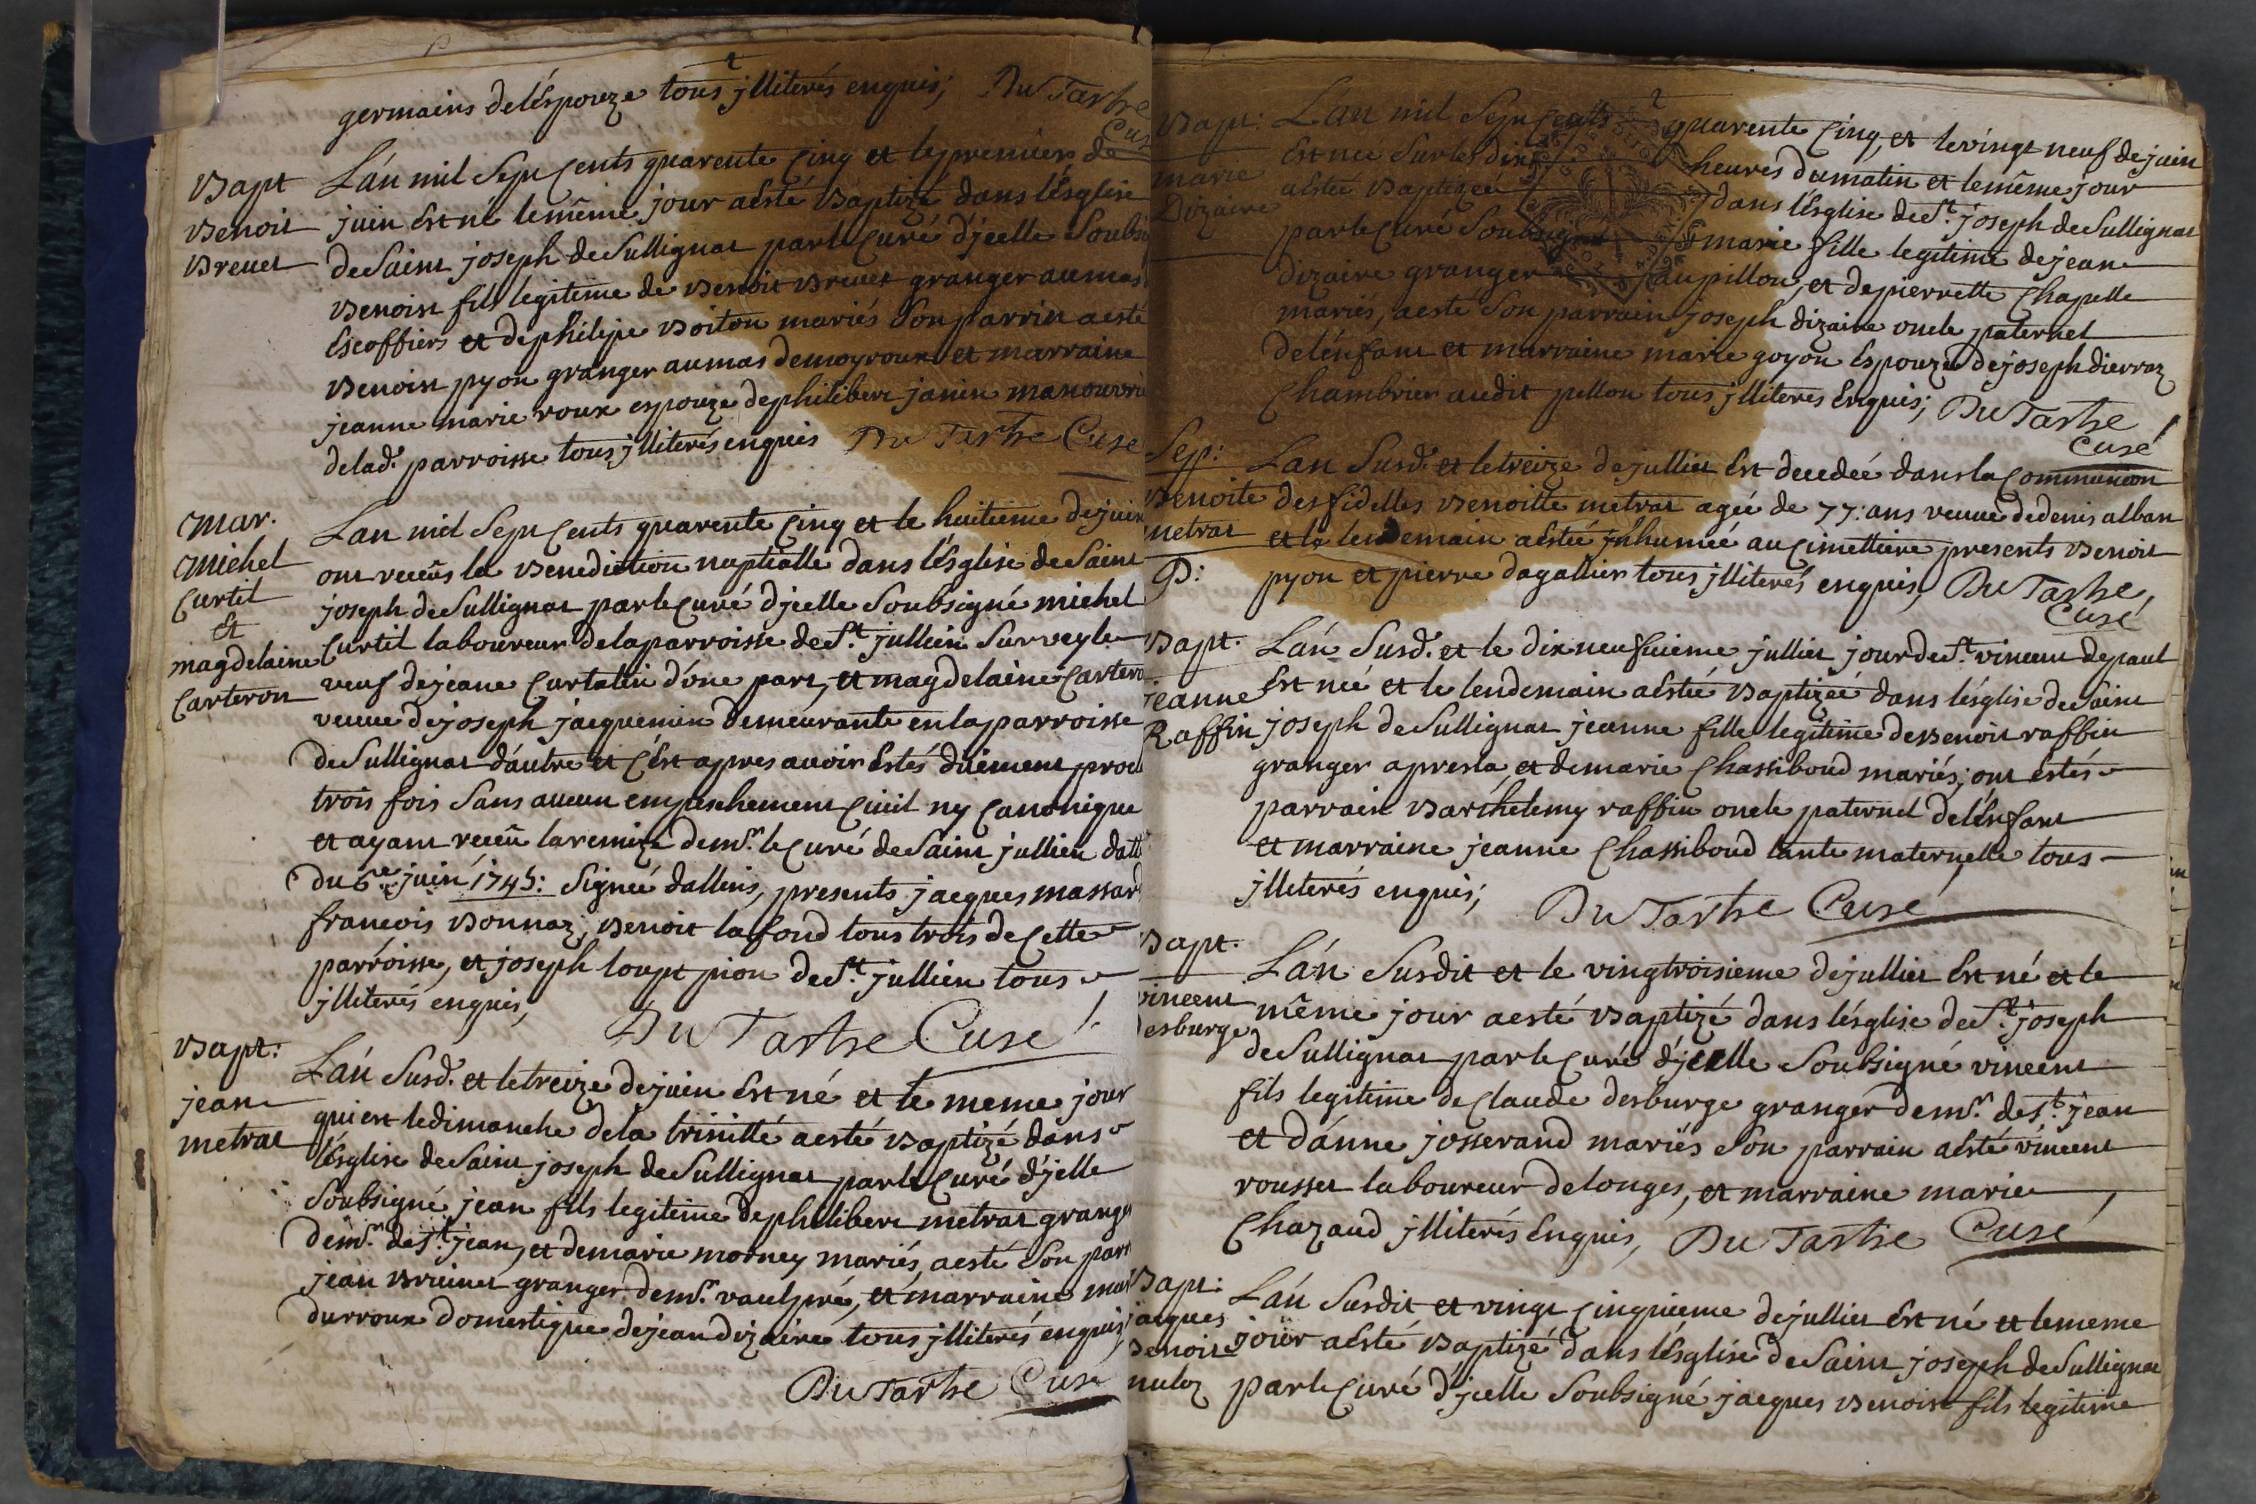 germains deléspouze tous jlliterés enquis; Du Tartre
Curé
Bapt
Benoit
Brevet
Lán mil Sept Cents quarente Cinq et le premier de
juin Est né le même jour aesté Baptizé dans lésglise
de Saint joseph de Sullignat par le Curé d'jcelle Soubsi
Benoist fils legitime de Benoit Brevet granger au mas
Escoffier et de philipe Boiton mariés Son parrin aesté
Benoist pyon granger au mas demoyroux et marraine
jeanne marie roux espouze de philibert janin manouvri
de lad.e parroisse tous jlliterés enquis Du Tartre Curé
Mar.
Michel
Curtil
Et
magdelaine
Carteron
Lan mil Sept Cents quarente Cinq et le huitieme de juin
ont receus la Benediction nuptialle dans lésglise de Saint
joseph de Sullignat par le Curé djcelle Soubsigné michel
Curtil laboureur de la parroisse de St. jullien Sur veyle
veuf de jeane Curtelin d'óne part, et magdelaine Cartero
veuve de joseph jacquemin demeurante en la parroisse
de Sullignat dáutre et Cést apres avoir Estés düement procl
trois fois Sans aucun empeschement Civil ny Canonique
et ayant receü la remize de mr. le Curé de Saint jullien datt
du 6.e juin 1745: Signeé dallens, presents jacques massard
francois Bonnaz, Benoit lafond tous trois de Cette
parroisse, et joseph loupt pion de St. jullien tous
jlliterés enquis,
Du Tartre Curé
Bapt:
jean
metrat
Lán Susd.t et le treize de juin Est né et le meme jour
qui est le dimanche de la trinitté aesté Baptizé dans
lésglise de Saint joseph de Sullignat par le Curé d'jelle
Soubsigné jean fils legitime de philibert metrat grange
de mr. de St. jean, et de marie morney mariés, aesté Son parr
jean Bruinet granger de mr. vaulpré, et marraine mar
durroux domestique de jean dizaire tous jlliterés enquis,
Du Tartre Curé
Bapt:
marie
Dizaire
Lan mil Sept Cents quarente Cinq, et le vingt neuf de juin
Est neé Sur les dix heures du matin et le même jour
aesteé Baptizeé dans lésglise de St. joseph de Sullignat
par le Curé Soubsigné marie fille legitime de jean
dizaire granger au pillon, et de pierrette Chapelle
mariés, aesté Son parrain joseph dizaire oncle paternel
delénfant et marraine marie goyon Espouze de joseph dierraz
Chambrier audit pellon tous jlliteres Enquis; Du Tartre
Curé
Sep:
Benoite
metrat
P:
Lán Susd.t et le treize de jullier Est decedeé dans la Communion
des fidelles Benoitte metrat ageé de 77: ans veuve de denis alban
et le lendemain aesteé jnhumeé au Cimettiere presents Benoit
pyon et pierre dagallier tous jlliterés enquis, Du Tartre,
Curé
Bapt.
jeanne
Raffin
Lán Susd.t et le dix neufvieme jullier jour de St. vincent de paul
Est neé et le lendemain aesteé Baptizeé dans lésglise de Saint
joseph de Sullignat jeanne fille legitime de Benoit raffin
granger apresla, et de marie Chassiboud mariés; ont estés
parrain Barthelemy raffin oncle paternel delénfant
et marraine jeanne Chassiboud tante maternelle tous
jlliterés enquis;
Du Tartre Curé
Bapt.
vincent
desburge
Lán Susdit et le vingtroisieme de jullier Est né et le
même jour aesté Baptizé dans lésglise de St. joseph
de Sullignat par le Curé d'jcelle Soubsigné vincent
fils legitime de Claude desburge granger de mr. de St. jean
et dánne josserand mariés Son parrain aesté vincent
rousset laboureur de longes, et marraine marie
Chazaud jlliterés Enquis, Du Tartre Curé
Bapt:
jacques
Benoit
nuloz
Lán Susdit et vingt Cinquieme de jullier Est né et le meme
joür aesté Baptizé dans lésglise de Saint joseph de Sullignat
par le Curé d'jcelle Soubsigné jacques Benoist fils legitime